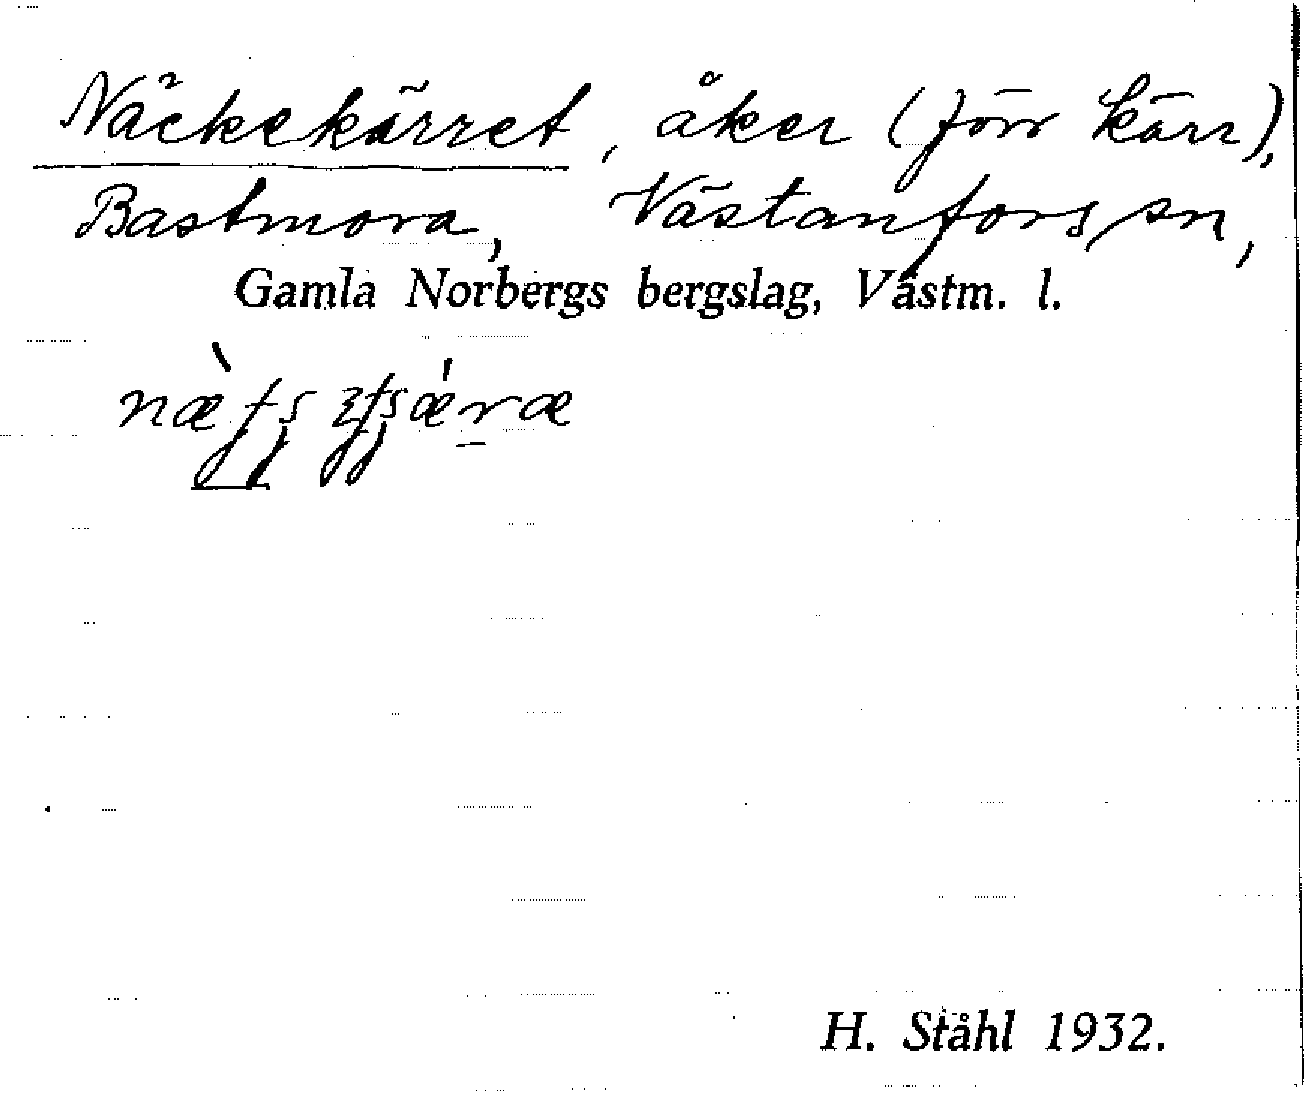 Näckekärret, åker (förr kärr),
Bastmora, Västanfors sn,
Gamla Norbergs bergslag, Västm. l.
H. Ståhl 1932.